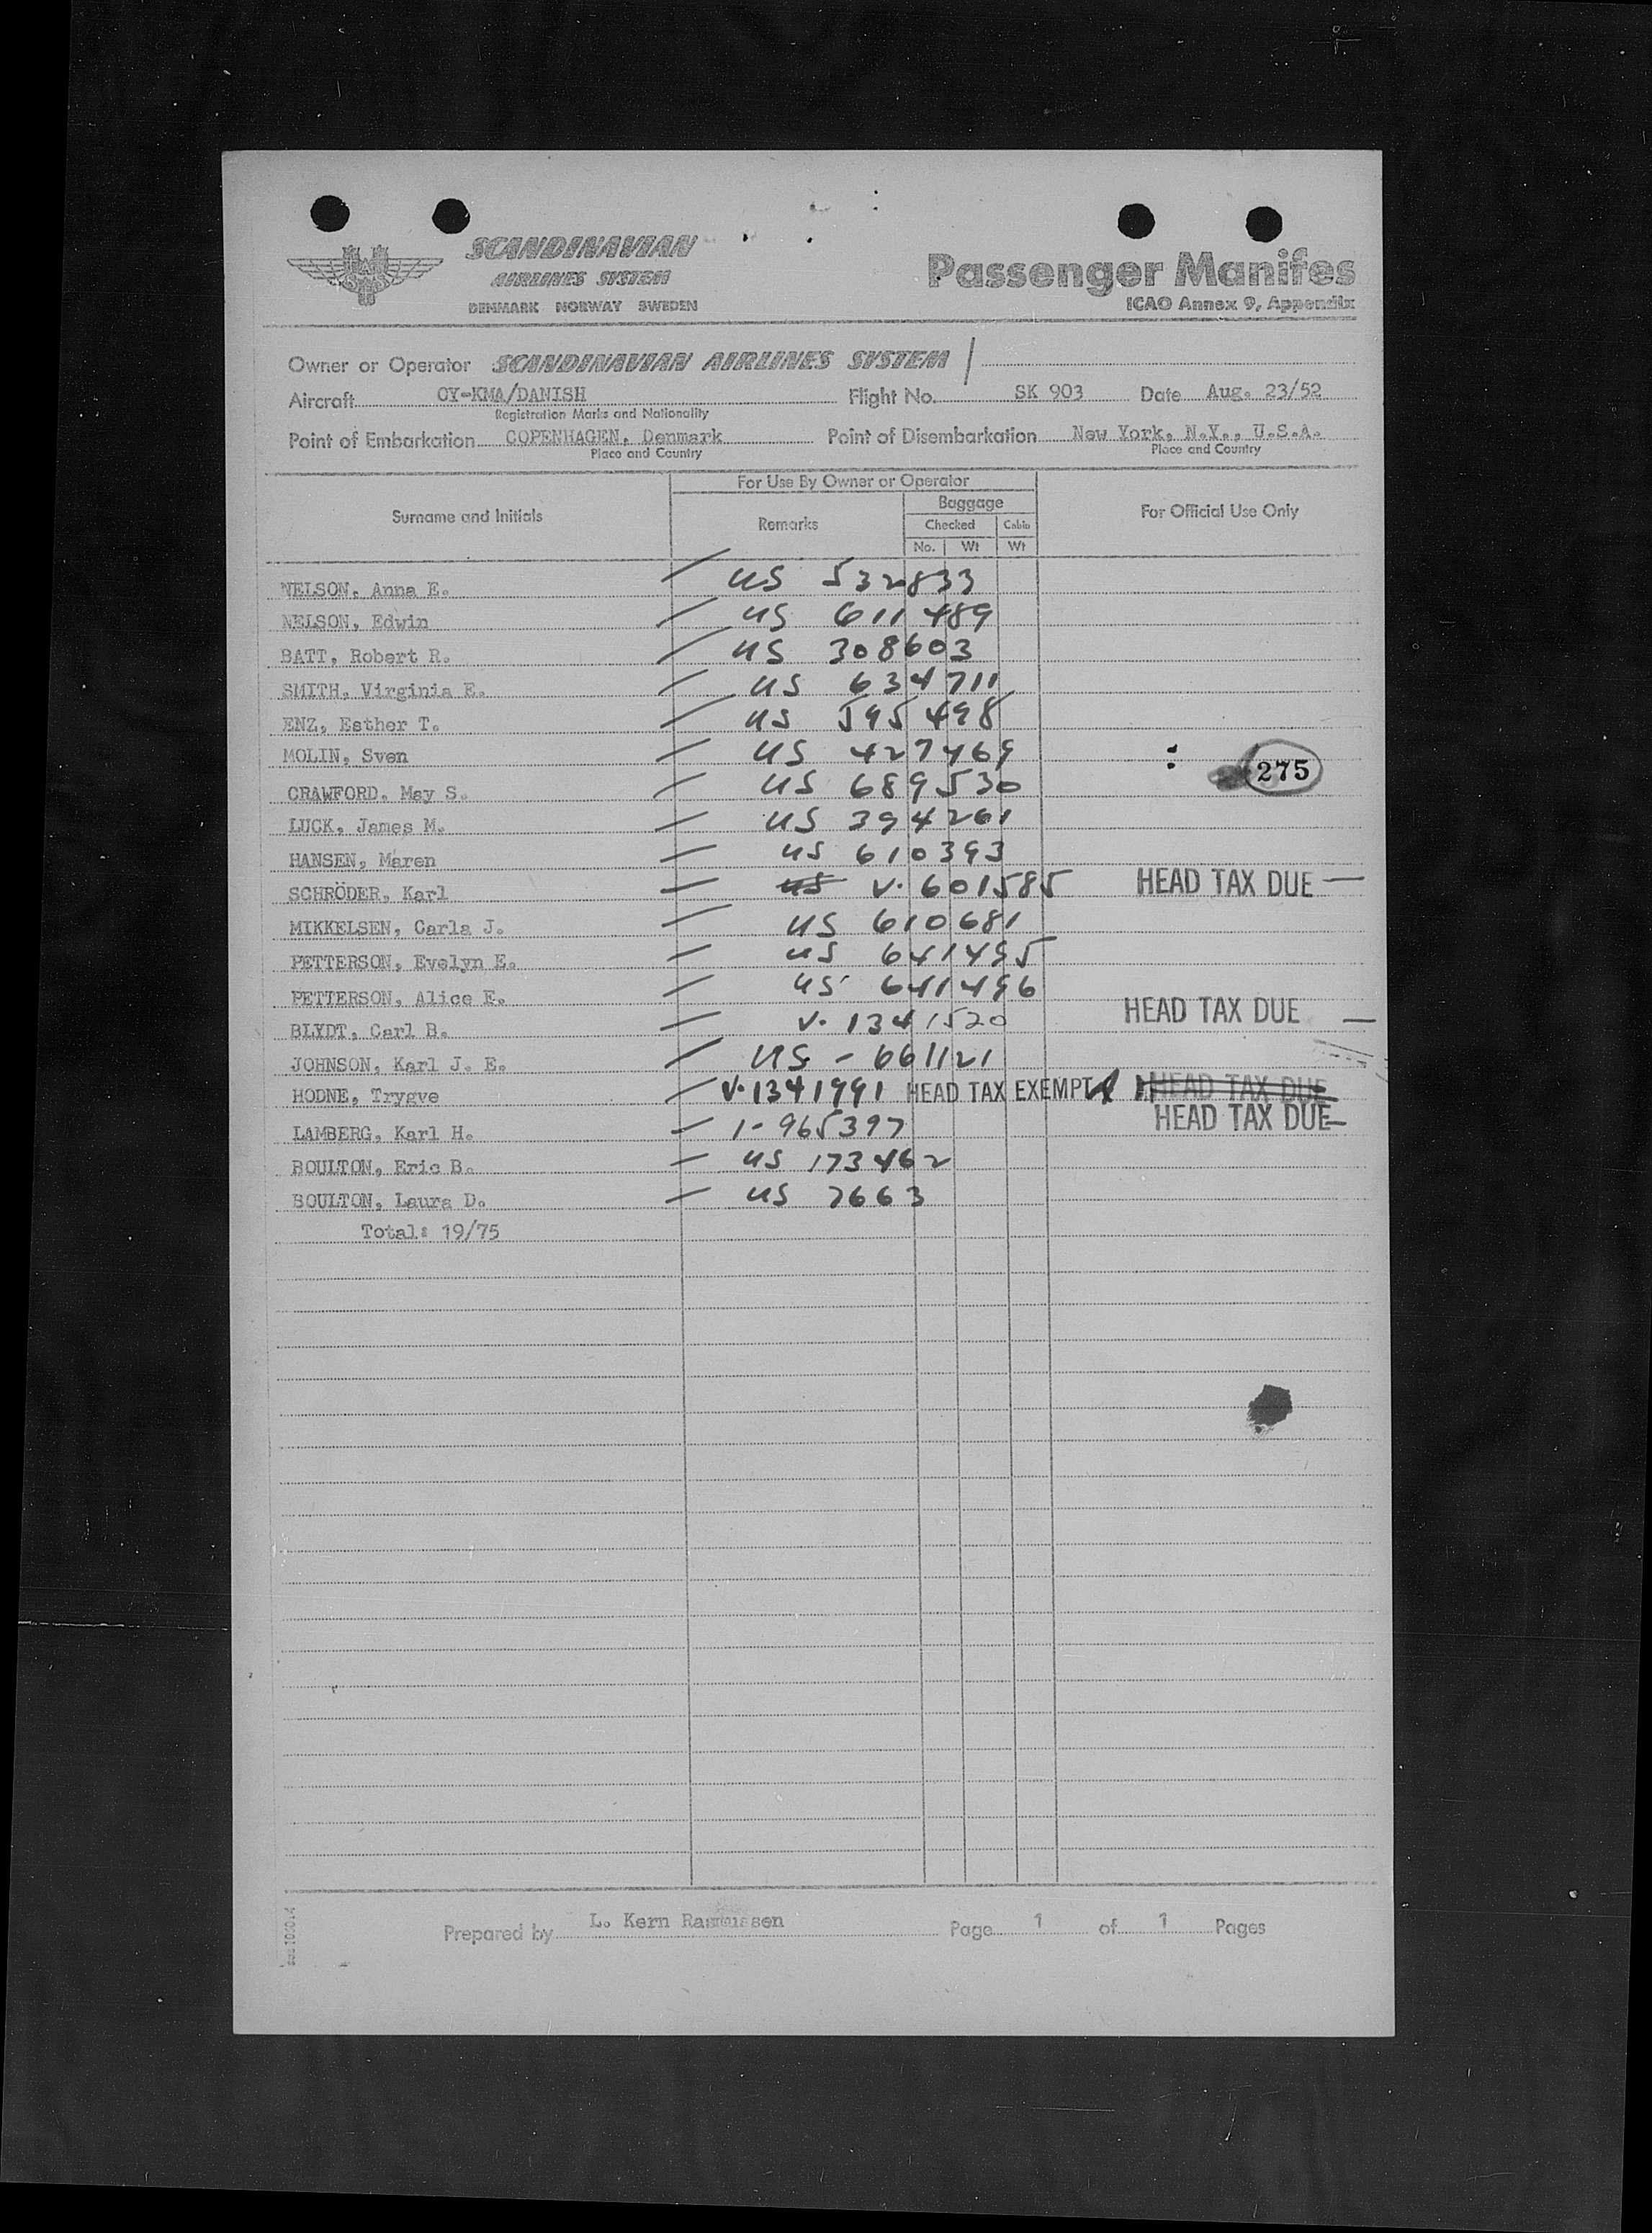 SCANDINAVIAN
AIRLINES SYSTEM
DENMARK NORWAY SWEDEN
Passenger Manifes
ICAO Annex 9, Appendix
Owner or Operator SCANDINAVIAN AIRLINES SYSTEM
Aircraft OY-KMA/DANISH Flight No. SK 903 Date Aug. 23/52
Registration Marks and Nationality
Point of Embarkation COPENHAGEN, Denmark Point of Disembarkation New York, N.Y., U.S.A.
Place and Country Place and Country
For Use By Owner or Operator
Surname and Initials Remarks Baggage For Official Use Only
Checked Cabin
No. Wt Wt
NELSON, Anna E. US 532833
NELSON, Edwin US 611489
BATT, Robert R. US 308603
SMITH, Virginia E. US 634711
ENZ, Esther T. US 595498
MOLIN, Sven US 427469
275
CRAWFORD, May S. US 689530
LUCK, James M. US 394261
HANSEN, Maren US 610393
SCHRÖDER, Karl US V. 601585 HEAD TAX DUE —
MIKKELSEN, Carla J. US 610681
PETTERSON, Evelyn E. US 641495
PETTERSON, Alice E. US 641496
BLYDT, Carl B. V. 1341520 HEAD TAX DUE —
JOHNSON, Karl J. E. US - 661121
HODNE, Trygve V. 1341991 HEAD TAX EXEMPT HEAD TAX DUE
LAMBERG, Karl H. 1-965397 HEAD TAX DUE —
BOULTON, Eric B. US 173462
BOULTON, Laura D. US 7663
Total: 19/75
Prepared by L. Kern Rasmussen Page 1 of 1 Pages